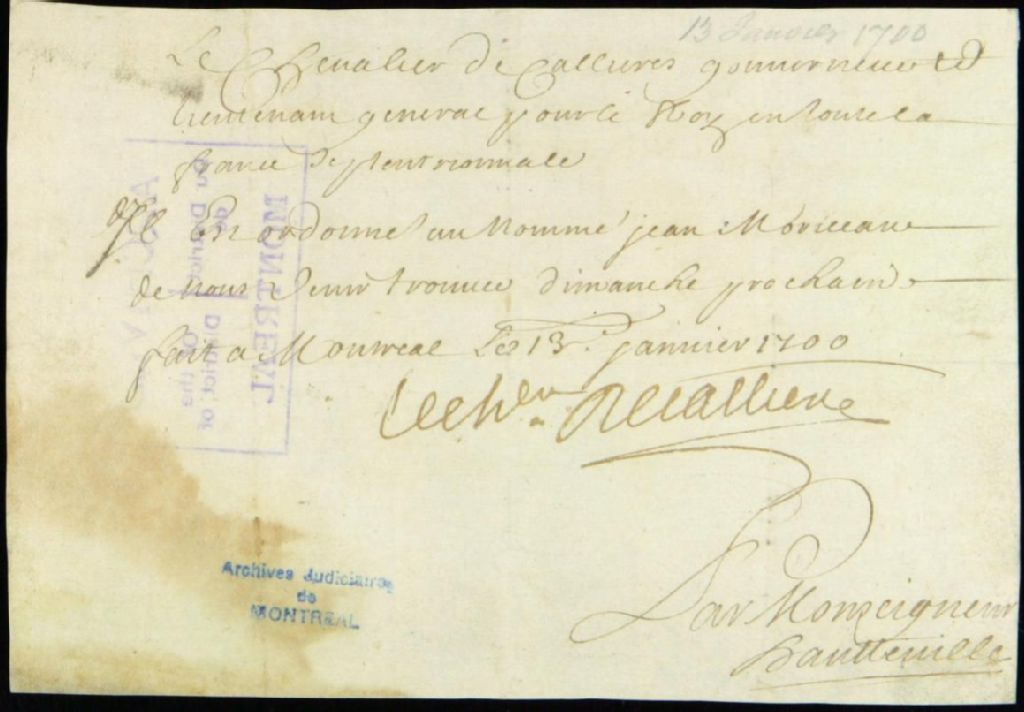 13 Janvier 1700
Le Chevalier de Callieres gouverneur et
Lieutenant general pour le Roy en toute la
france septentrionnalle
Il Est ordonné au nommé jean Moriceau
de nous venir trouver dimanche prochain
fait a Monreal Le 13e. janvier 1700
Le chr De Calliere
Par Monseigneur
hautteville
Archives Judiciaires
de
MONTREAL
ARCHIVES
du District
de
District of
Of the
MONTREAL